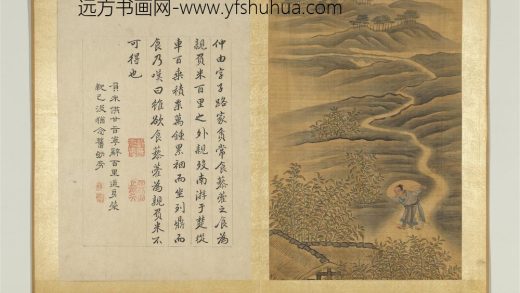 远方书画网-www.yfshuhua.com
仲由字子路家貧常食藜藿之食為
親負米百里之外親歿南游于楚從
車百乘積粟萬鍾累裀而坐列鼎而
食乃嘆曰雖欲食藜藿為親負米不
可得也
負米供甘旨寧辭百里遙身榮
親已沒猶念舊劬勞